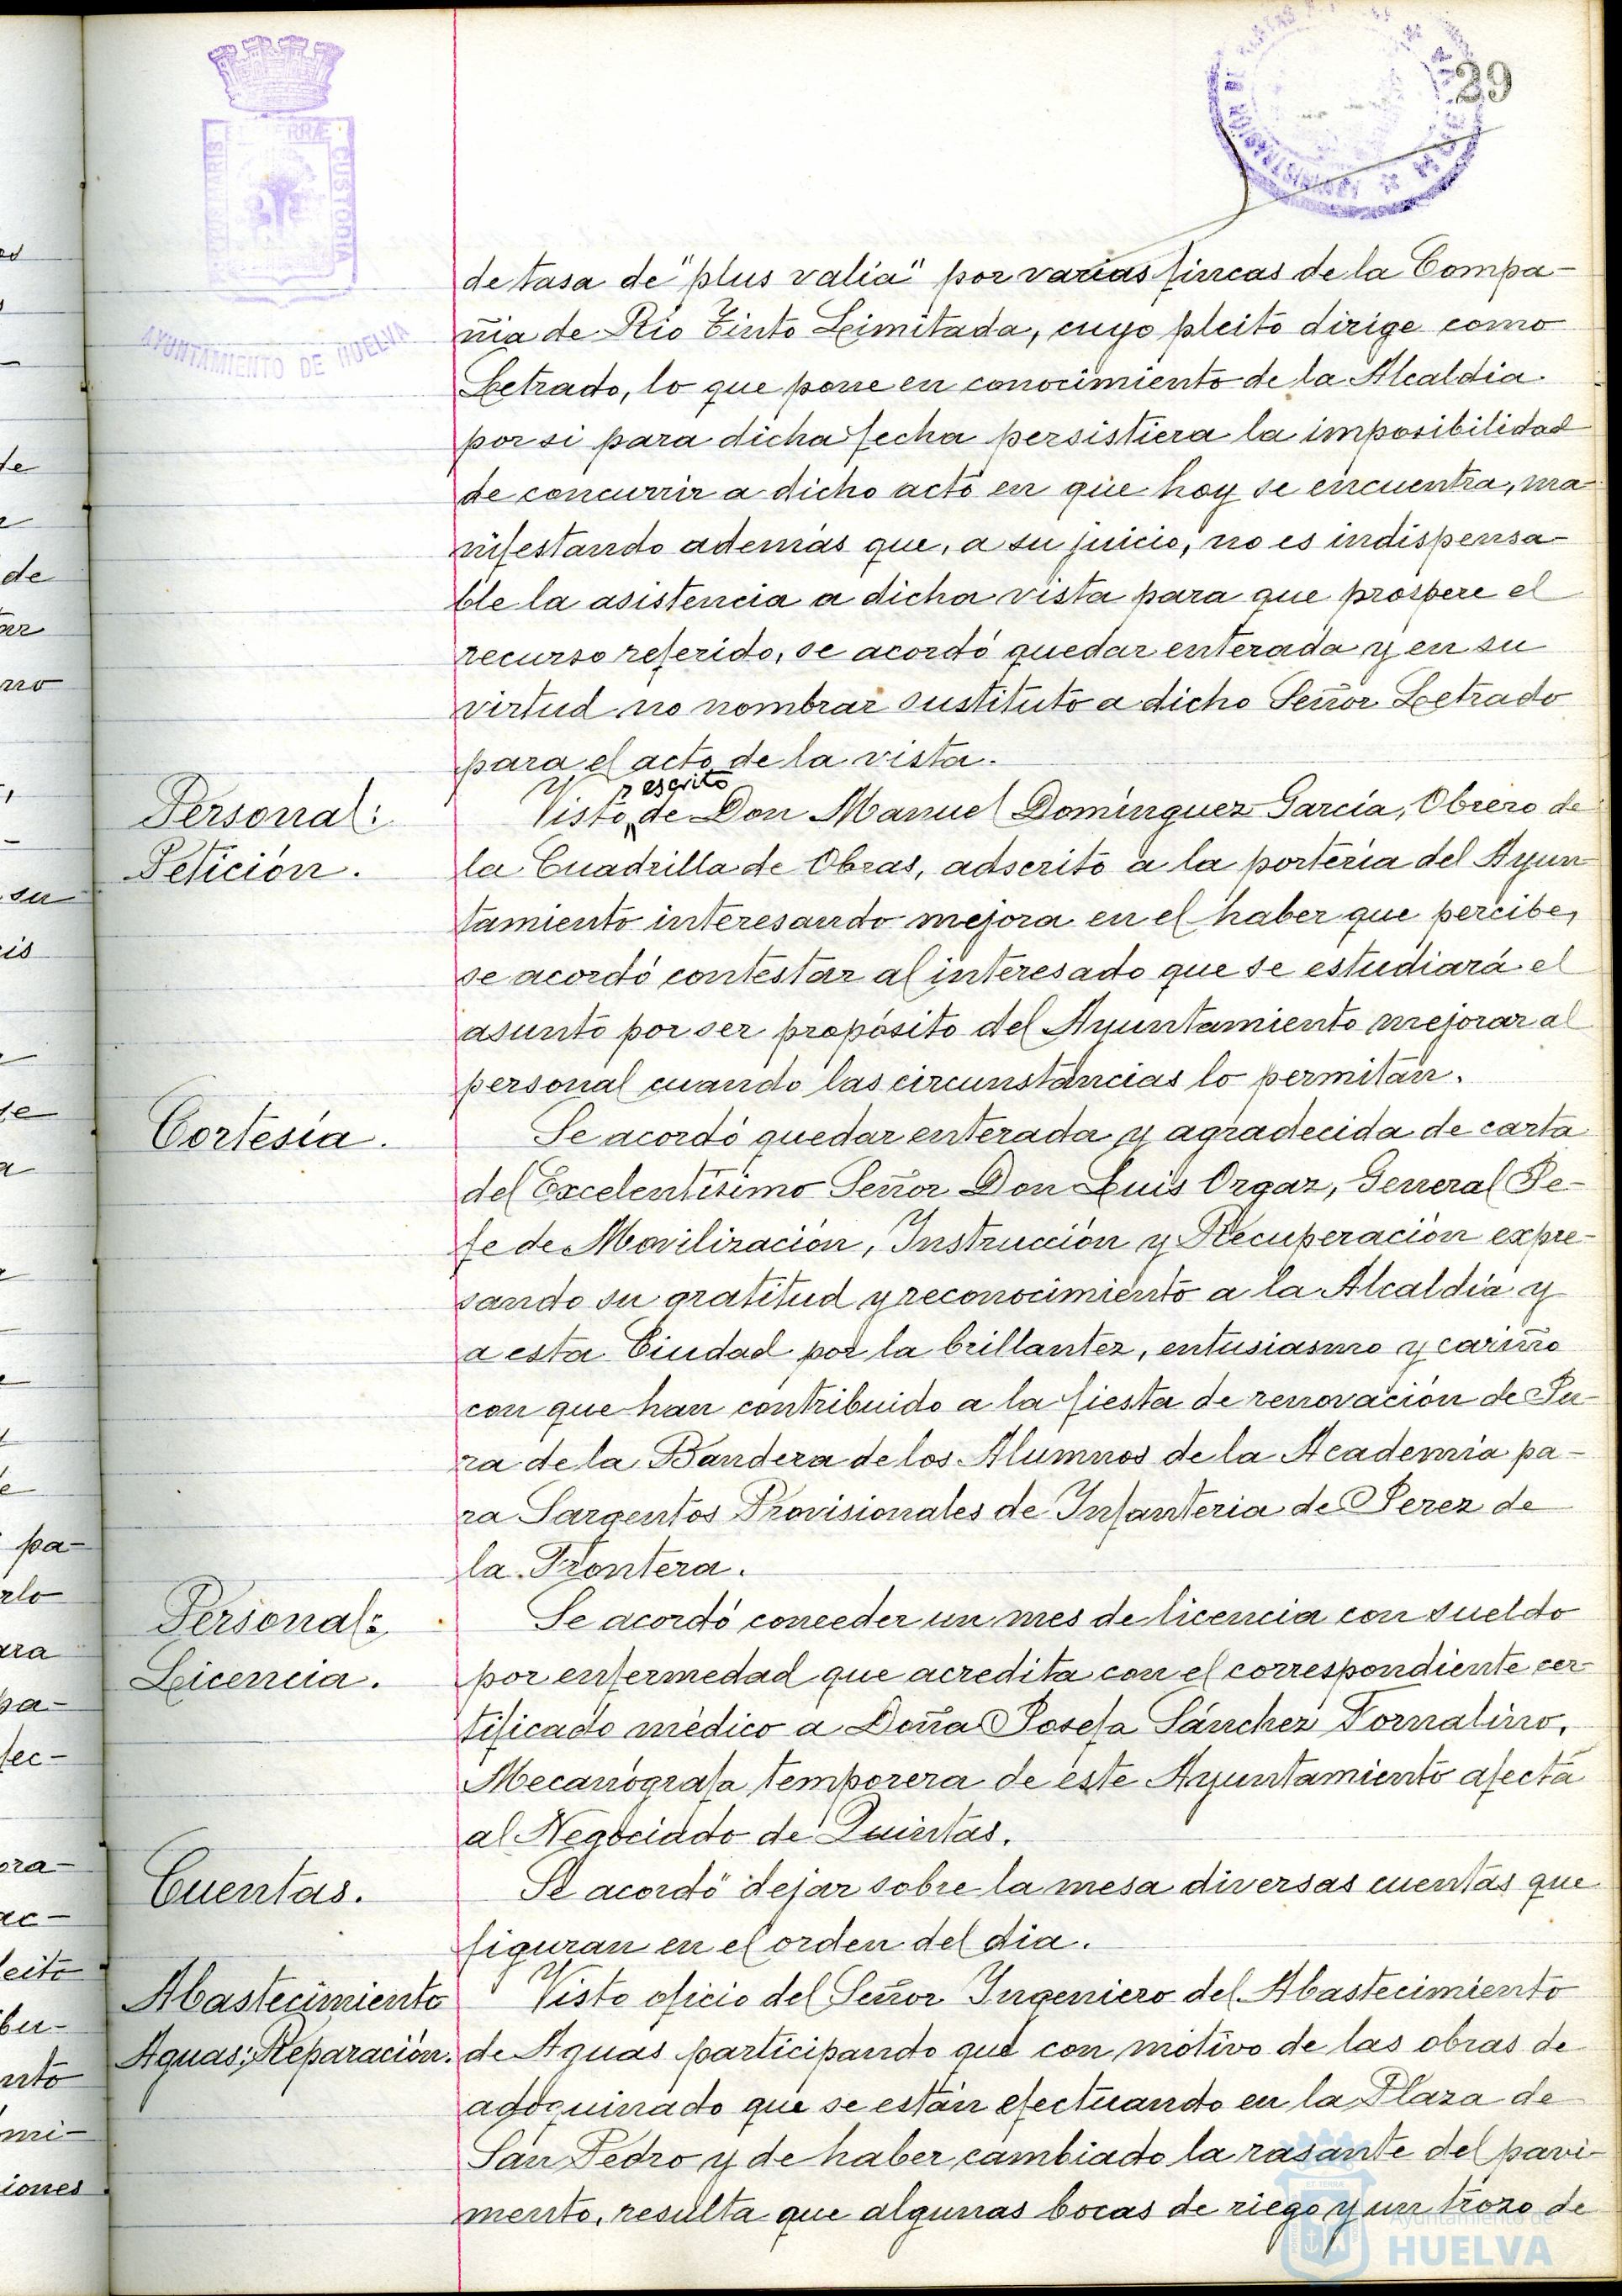 29
PORTUS MARIS ET TERRÆ CUSTODIA
AYUNTAMIENTO DE HUELVA
de tasa de "plus valía" por varias fincas de la Compa-
ñia de Rio Tinto Limitada, cuyo pleito dirige como
Letrado, lo que pone en conocimiento de la Alcaldía
por si para dicha fecha persistiera la imposibilidad
de concurrir a dicho acto en que hoy se encuentra, ma-
nifestando además que, a su juicio, no es indispensa-
ble la asistencia a dicha vista para que prospere el
recurso referido, se acordó quedar enterada y en su
virtud no nombrar sustituto a dicho Señor Letrado
para el acto de la vista.
Personal:
Petición.
escrito
Visto de Don Manuel Domínguez García, Obrero de
la Cuadrilla de Obras, adscrito a la portería del Ayun
tamiento interesando mejora en el haber que percibe,
se acordó contestar al interesado que se estudiará el
asunto por ser propósito del Ayuntamiento mejorar al
personal cuando las circunstancias lo permitan.
Cortesía.
Se acordó quedar enterada y agradecida de carta
del Excelentísimo Señor Don Luis Orgaz, General Je-
fe de Movilización, Instrucción y Recuperación expre-
sando su gratitud y reconocimiento a la Alcaldía y
a esta Ciudad por la brillantez, entusiasmo y cariño
con que han contribuido a la fiesta de renovación de Ju-
ra de la Bandera de los Alumnos de la Academia pa-
ra Sargentos Provisionales de Infantería de Jerez de
la Frontera.
Personal:
Licencia.
Se acordó conceder un mes de licencia con sueldo
por enfermedad que acredita con el correspondiente cer-
tificado médico a Doña Josefa Sánchez Tornalino,
Mecanógrafa temporera de este Ayuntamiento afecta
al Negociado de Quintas.
Cuentas.
Se acordó dejar sobre la mesa diversas cuentas que
figuran en el orden del dia.
Abastecimiento
Aguas: Reparación.
Visto oficio del Señor Ingeniero del Abastecimiento
de Aguas participando que con motivo de las obras de
adoquinado que se están efectuando en la Plaza de
San Pedro y de haber cambiado la rasante del pavi-
mento, resulta que algunas bocas de riego y un trozo de
Ayuntamiento de
HUELVA